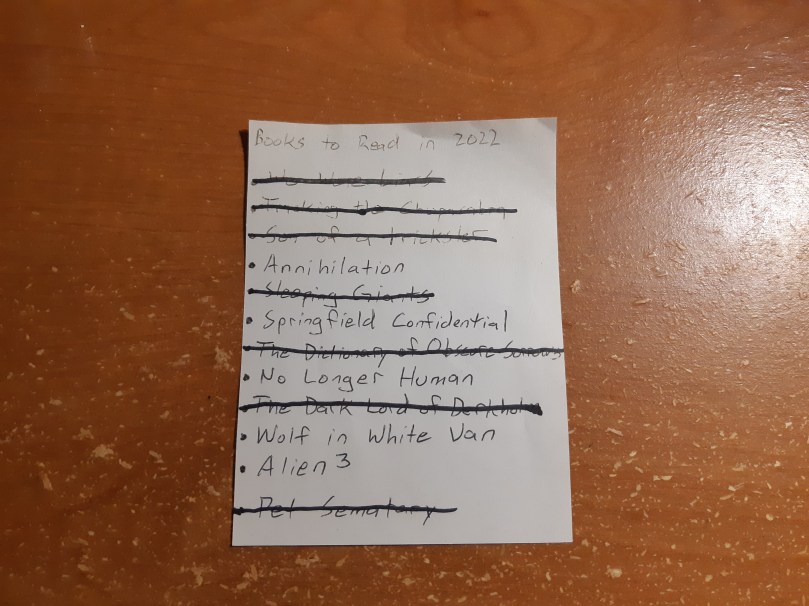 Books to Read in 2022
We Were Liars
Tracking the Chupacabra
Son of a trickster
• Annihilation
Sleeping Giants
• Springfield Confidential
The Dictionary of Obscure Sorrows
• No Longer Human
The Dark Lord of Derkholm
• Wolf in White Van
• Alien³
Pet Sematary